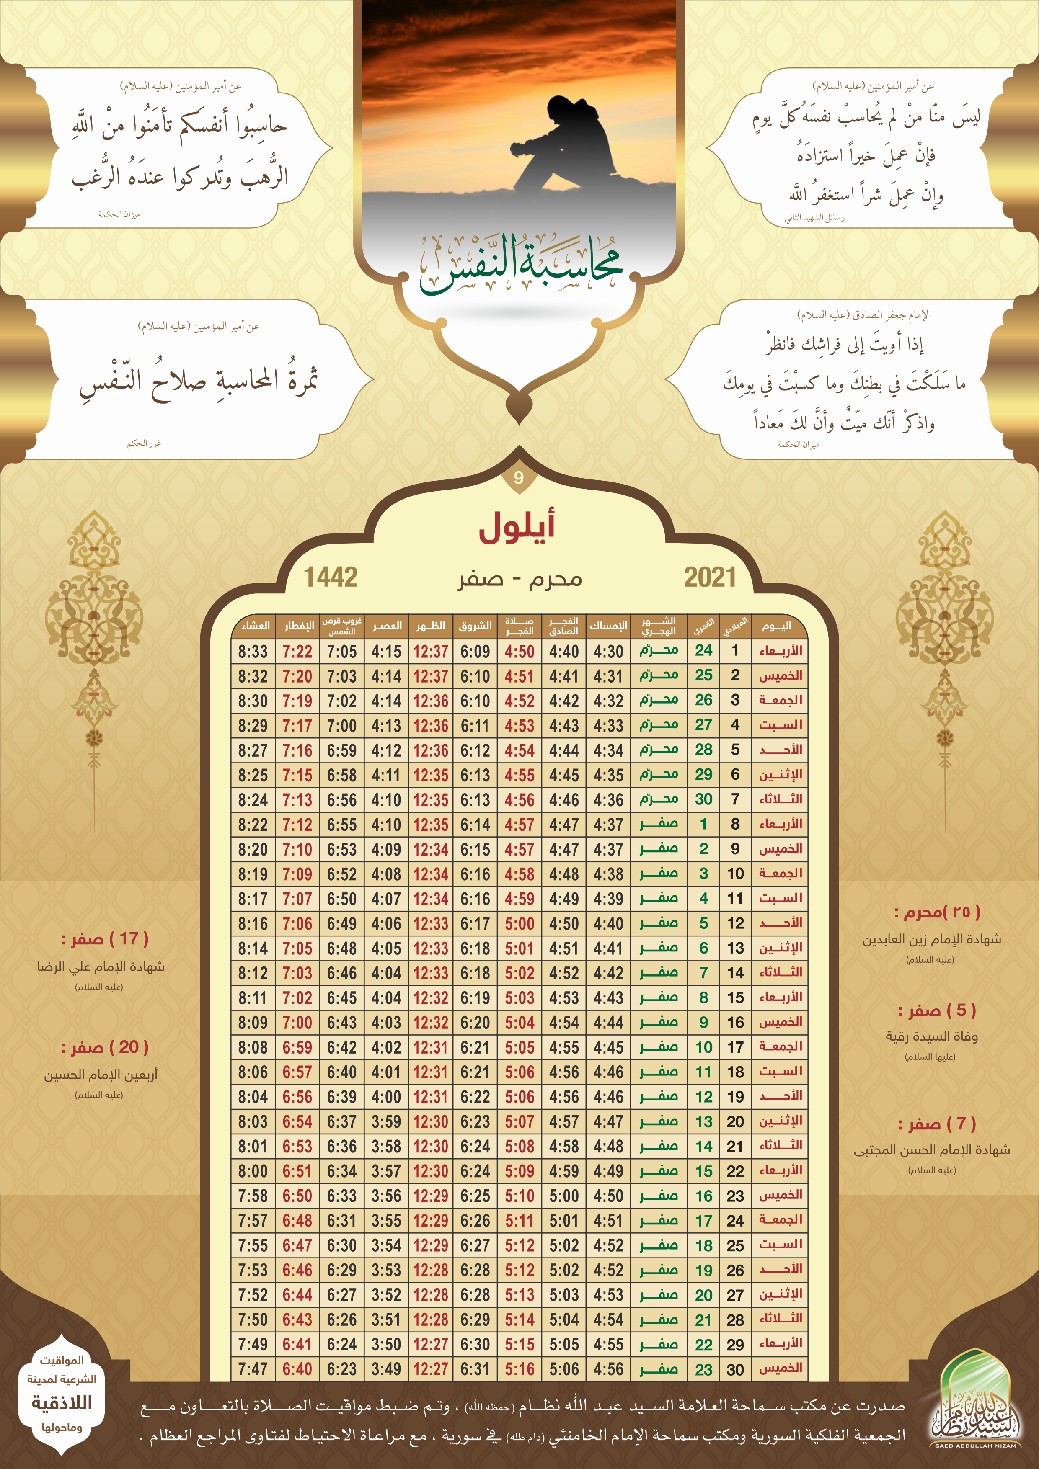 عن أمير المؤمنين (عليه السلام)
ليسَ منّا منْ لم يُحاسبْ نفسَهُ كلَّ يومٍ
فإنْ عمِلَ خيراً استزادَهُ
وإنْ عمِلَ شراً استغفرُ اللّه
رسائل الشهيد الثاني
عن أمير المؤمنين (عليه السلام)
حاسِبُوا أنفسَكم تأمَنُوا منْ اللَّهِ
الرُّهبَ وتُدركوا عندَهُ الرُّغب
ميزان الحكمة
محُاسَبَةُ النَّفْسِ
الإمام جعفر الصادق (عليه السلام)
إذا أويتَ إلى فراشِك فانظرْ
ما سَلَكْتَ في بطنِكَ وما كسبْتَ في يومِكَ
واذكرْ أنّك ميّتٌ وأنَّ لكَ مَعاداً
ميزان الحكمة
عن أمير المؤمنين (عليه السلام)
ثمرةُ المحاسبةِ صلاحُ النّفْسِ
غرر الحكم
9
أيلول
2021 محرم - صفر 1442
اليوم الميلادي القمري الشهر الهجري الإمساك الفجر الصادق صلاة الفجر الشروق الظهر العصر غروب قرص الشمس الإفطار العشاء
الأربعاء 1 24 محرم 4:30 4:40 4:50 6:09 12:37 4:15 7:05 7:22 8:33
الخميس 2 25 محرم 4:31 4:41 4:51 6:10 12:37 4:14 7:03 7:20 8:32
الجمعة 3 26 محرم 4:32 4:42 4:52 6:10 12:36 4:14 7:02 7:19 8:30
السبت 4 27 محرم 4:33 4:43 4:53 6:11 12:36 4:13 7:00 7:17 8:29
الأحد 5 28 محرم 4:34 4:44 4:54 6:12 12:36 4:12 6:59 7:16 8:27
الإثنين 6 29 محرم 4:35 4:45 4:55 6:13 12:35 4:11 6:58 7:15 8:25
الثلاثاء 7 30 محرم 4:36 4:46 4:56 6:13 12:35 4:10 6:56 7:13 8:24
الأربعاء 8 1 صفر 4:37 4:47 4:57 6:14 12:35 4:10 6:55 7:12 8:22
الخميس 9 2 صفر 4:37 4:47 4:57 6:15 12:34 4:09 6:53 7:10 8:20
الجمعة 10 3 صفر 4:38 4:48 4:58 6:16 12:34 4:08 6:52 7:09 8:19
السبت 11 4 صفر 4:39 4:49 4:59 6:16 12:34 4:07 6:50 7:07 8:17
الأحد 12 5 صفر 4:40 4:50 5:00 6:17 12:33 4:06 6:49 7:06 8:16
الإثنين 13 6 صفر 4:41 4:51 5:01 6:18 12:33 4:05 6:48 7:05 8:14
الثلاثاء 14 7 صفر 4:42 4:52 5:02 6:18 12:33 4:04 6:46 7:03 8:12
الأربعاء 15 8 صفر 4:43 4:53 5:03 6:19 12:32 4:04 6:45 7:02 8:11
الخميس 16 9 صفر 4:44 4:54 5:04 6:20 12:32 4:03 6:43 7:00 8:09
الجمعة 17 10 صفر 4:45 4:55 5:05 6:21 12:31 4:02 6:42 6:59 8:08
السبت 18 11 صفر 4:46 4:56 5:06 6:21 12:31 4:01 6:40 6:57 8:06
الأحد 19 12 صفر 4:46 4:56 5:06 6:22 12:31 4:00 6:39 6:56 8:04
الإثنين 20 13 صفر 4:47 4:57 5:07 6:23 12:30 3:59 6:37 6:54 8:03
الثلاثاء 21 14 صفر 4:48 4:58 5:08 6:24 12:30 3:58 6:36 6:53 8:01
الأربعاء 22 15 صفر 4:49 4:59 5:09 6:24 12:30 3:57 6:34 6:51 8:00
الخميس 23 16 صفر 4:50 5:00 5:10 6:25 12:29 3:56 6:33 6:50 7:58
الجمعة 24 17 صفر 4:51 5:01 5:11 6:26 12:29 3:55 6:31 6:48 7:57
السبت 25 18 صفر 4:52 5:02 5:12 6:27 12:29 3:54 6:30 6:47 7:55
الأحد 26 19 صفر 4:52 5:02 5:12 6:28 12:28 3:53 6:29 6:46 7:53
الإثنين 27 20 صفر 4:53 5:03 5:13 6:28 12:28 3:52 6:27 6:44 7:52
الثلاثاء 28 21 صفر 4:54 5:04 5:14 6:29 12:28 3:51 6:26 6:43 7:50
الأربعاء 29 22 صفر 4:55 5:05 5:15 6:30 12:27 3:50 6:24 6:41 7:49
الخميس 30 23 صفر 4:56 5:06 5:16 6:31 12:27 3:49 6:23 6:40 7:47
(٢٥)محرم :
شهادة الإمام زين العابدين
(عليه السلام)
(5) صفر :
وفاة السيدة رقية
(عليها السلام)
(7) صفر :
شهادة الإمام الحسن المجتبى
(عليه السلام)
(17) صفر :
شهادة الإمام علي الرضا
(عليه السلام)
(20) صفر :
أربعين الإمام الحسين
(عليه السلام)
المواقيت
الشرعية لمدينة
اللاذقية
وماحولها
صدرت عن مكتب سماحة العلامة السيد عبد الله نظام (حفظه الله) ، وتم ضبط مواقيت الصلاة بالتعاون مع
الجمعية الفلكية السورية ومكتب سماحة الإمام الخامنئي (دام ظله) في سورية ، مع مراعاة الاحتياط لفتاوى المراجع العظام .
السيد عبدالله نظام
SAED ABDULLAH NIZAM